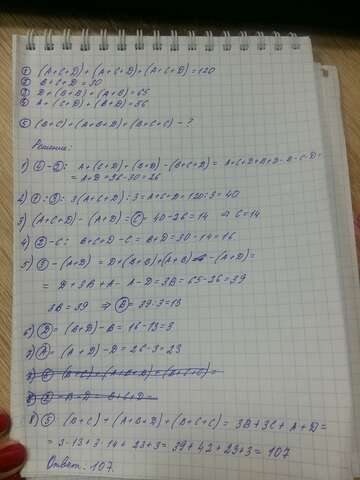 ① (A+C+D)+(A+C+D)+(A+C+D)=120
② B+C+D=30
③ D+(B+B)+(A+B)=65
④ A+(C+D)+(B+D)=56
⑤ (B+C)+(A+B+D)+(B+C+C) - ?
Решение:
1) ④-②: A+(C+D)+(B+D)-(B+C+D)= A+C+D+B+D-B-C-D=
= A+D=56-30=26
2) ①:3: 3(A+C+D):3=A+C+D=120:3=40
3) (A+C+D)-(A+D)=Ⓒ=40-26=14 ⇒ C=14
4) ②-C: B+C+D-C=B+D=30-14=16
5) ③-(A+D)=D+(B+B)+(A+B)-(A+D)=
= D+3B+A-A-D=3B=65-26=39
3B=39 ⇒ Ⓑ=39:3=13
6) Ⓓ=(B+D)-B=16-13=3
7) Ⓐ=(A+D)-D=26-3=23
8) ⑤ (B+C)+(A+B+D)+(B+C+C)=3B+3C+A+D=
= 3·13+3·14+23+3=39+42+23+3=107
Ответ: 107.